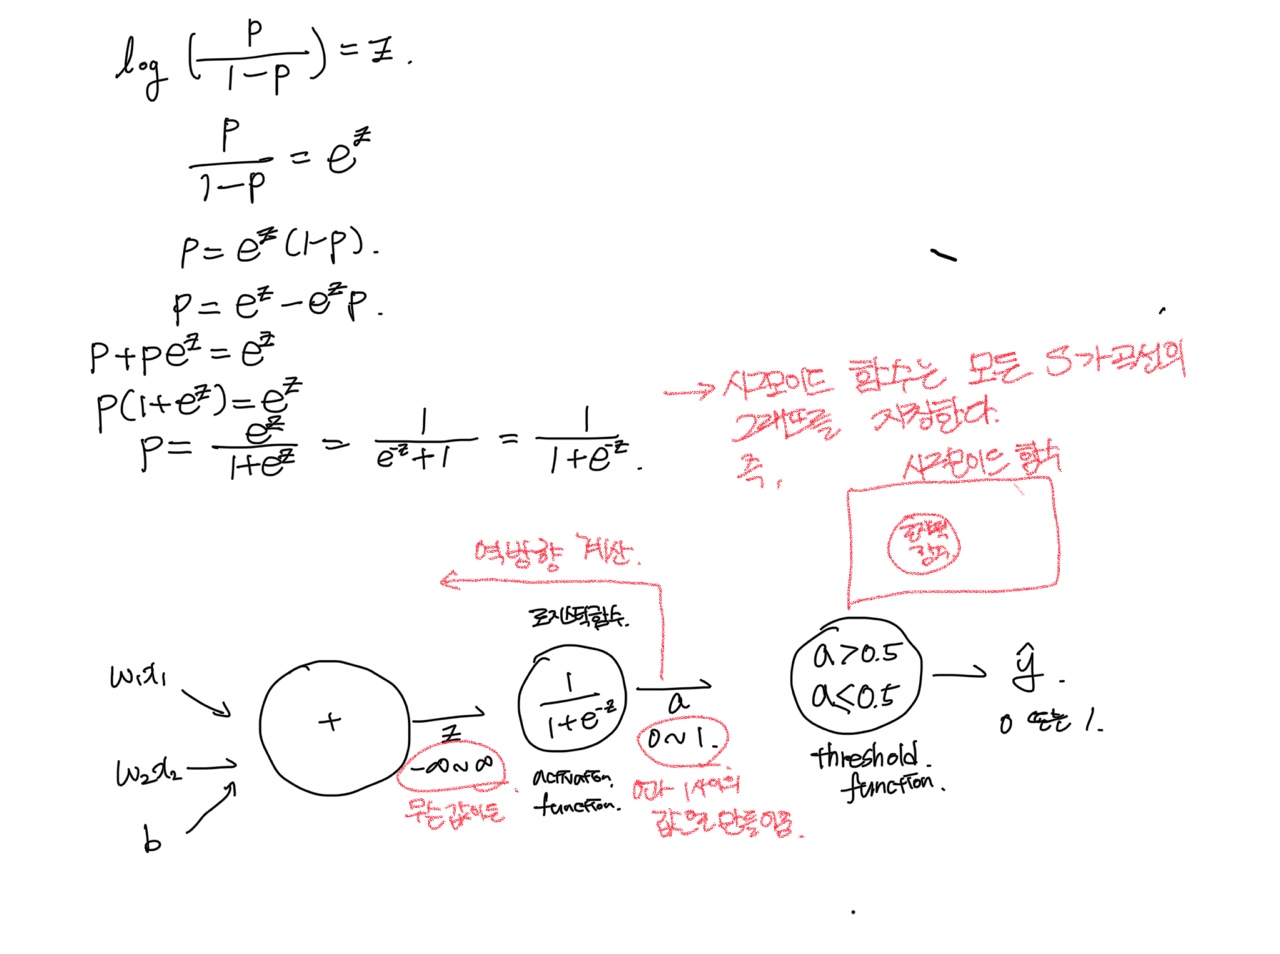 log (p/(1-p)) = z.
p/(1-p) = e^z
p = e^z (1-p).
p = e^z - e^z p.
p + pe^z = e^z
p(1+e^z) = e^z
p = e^z/(1+e^z) = 1/(e^-z + 1) = 1/(1+e^-z).
→ 시그모이드 함수는 모든 S가곡선의
그래프를 지칭한다.
즉,
시그모이드 함수
역방향 계산.
로지스틱함수.
w₁x₁
w₂x₂
b
+
z
-∞ ~ ∞
무슨값이든
1/(1+e^-z)
activation
function.
a
0 ~ 1.
0과 1사이의
값으로 만들어줌.
a > 0.5
a ≤ 0.5
threshold.
function.
ŷ.
0 또는 1.